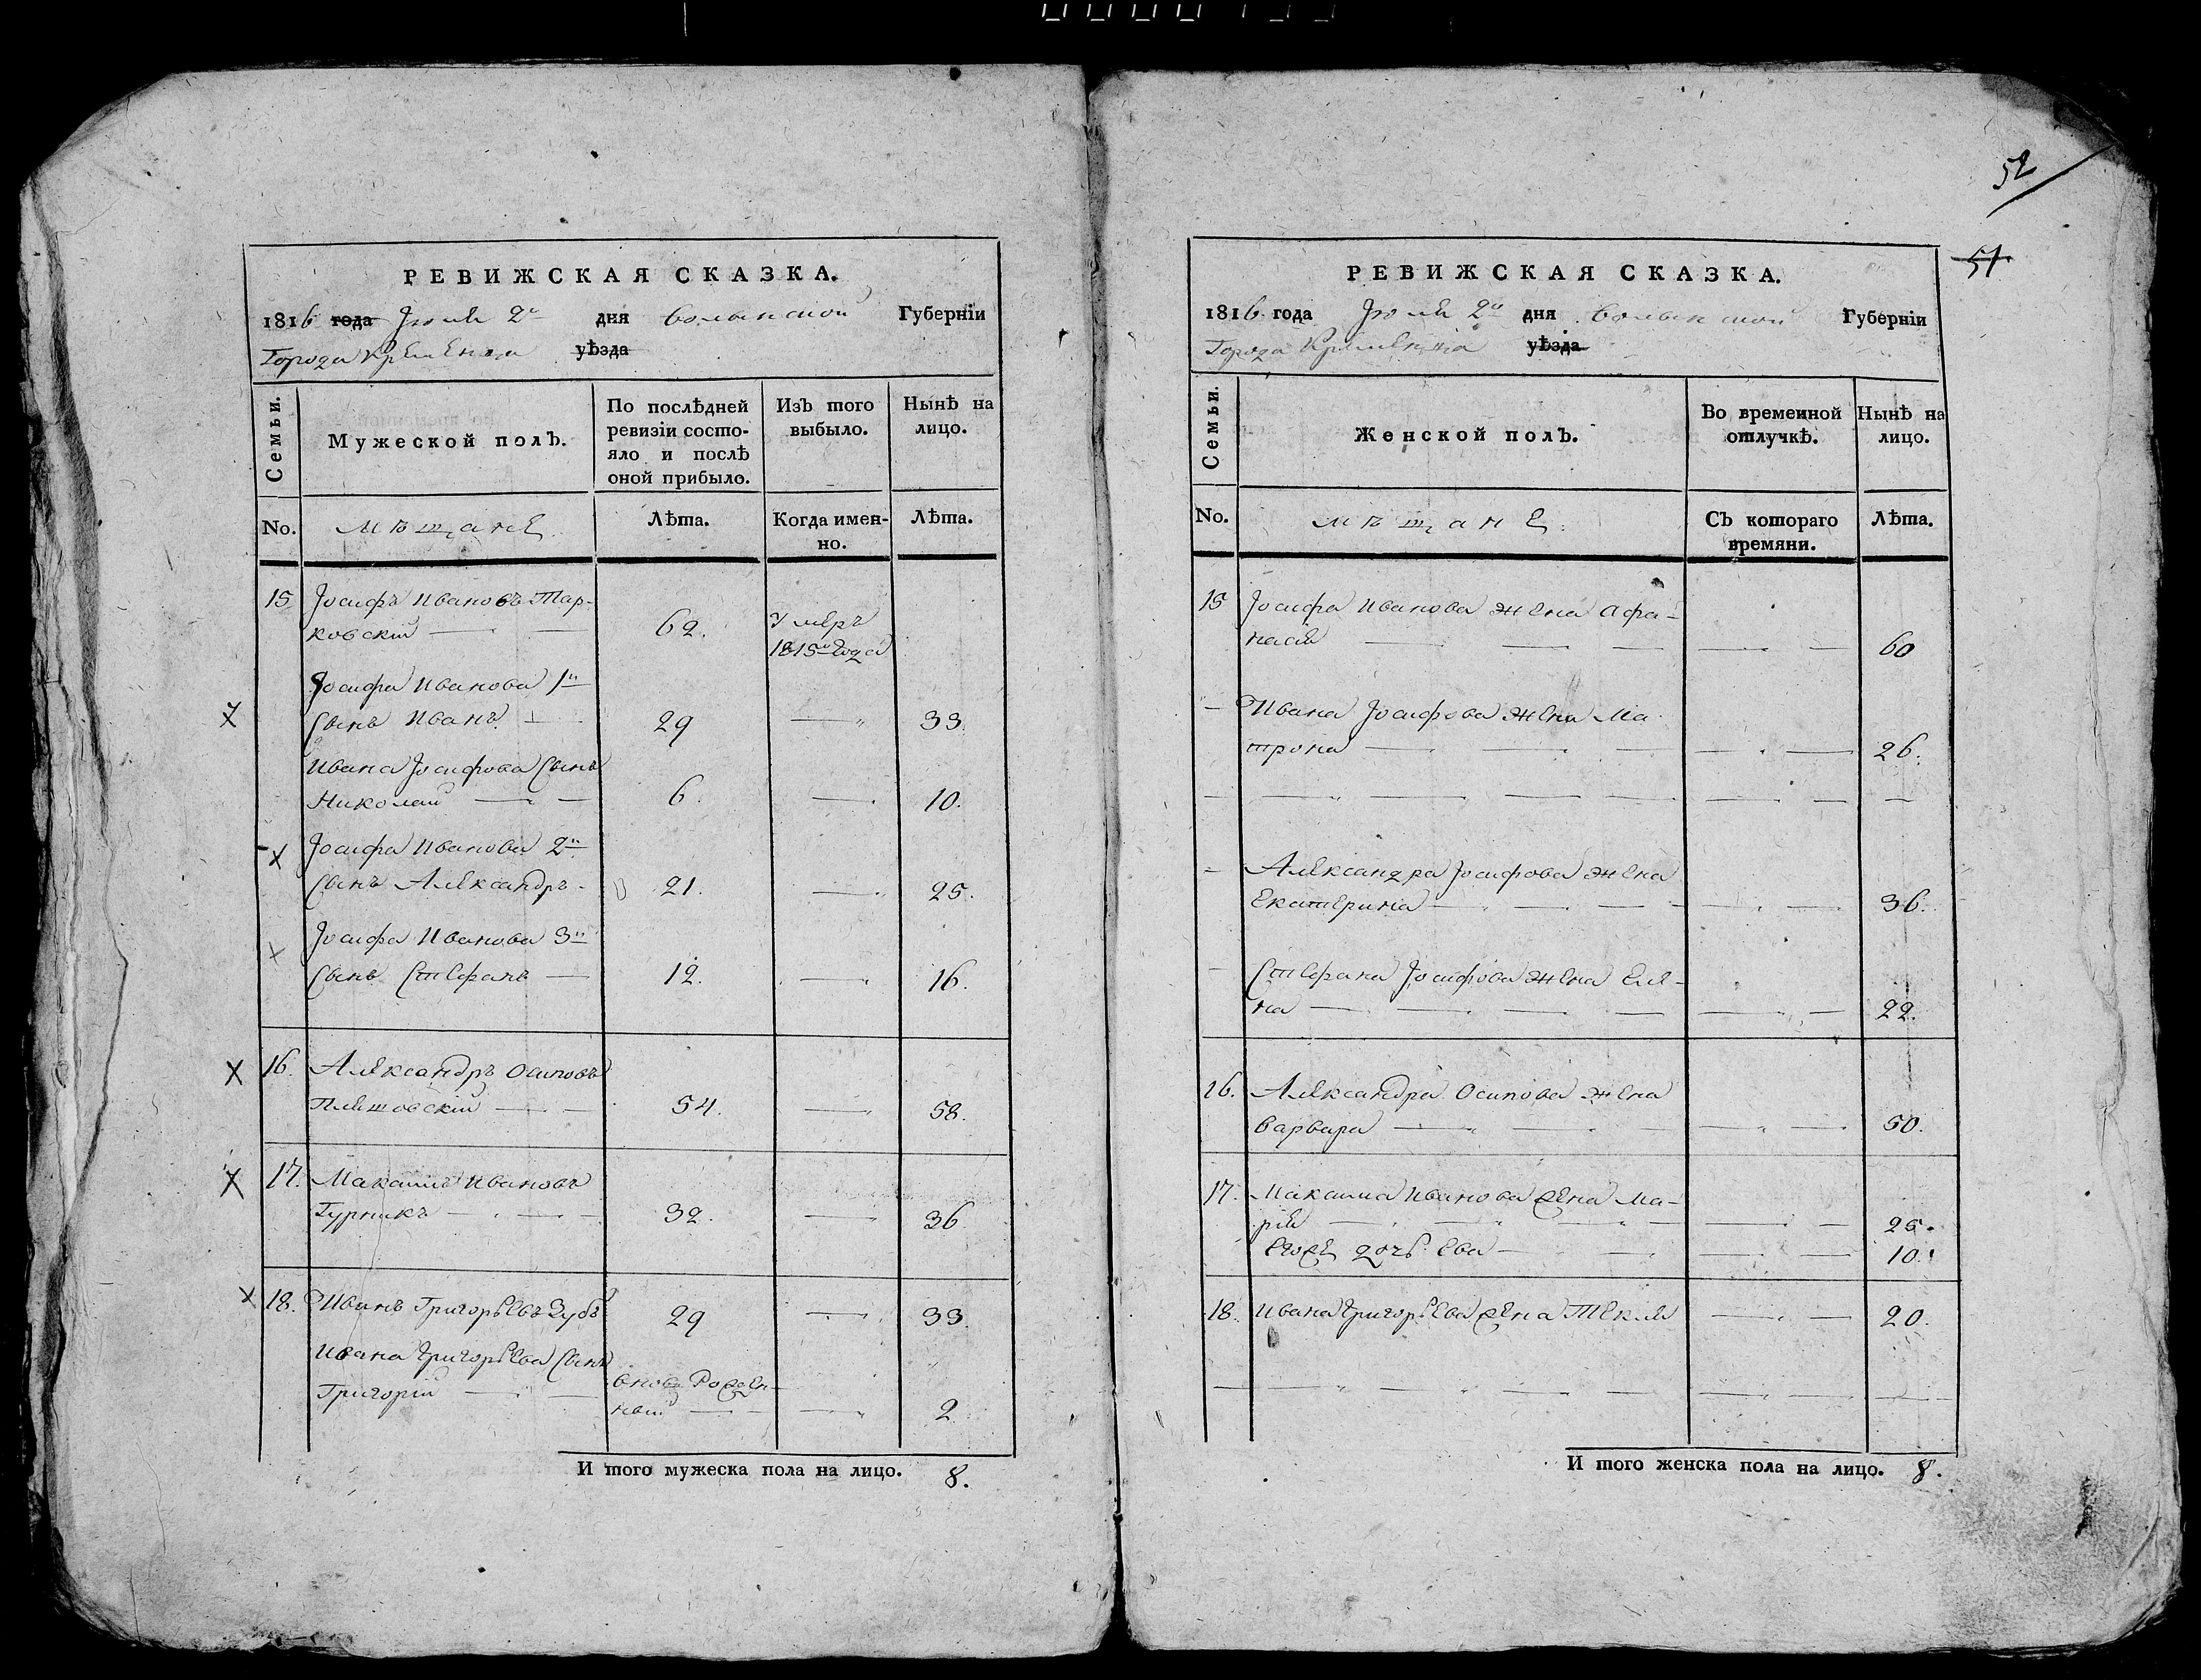 РЕВИЖСКАЯ СКАЗКА.
1816 года Іюля 2го дня Волынской Губерніи
Города Кременца уѣзда
Семьи.
Мужеской полъ.
По послѣдней ревизіи состо-
яло и послѣ
оной прибыло.
Изъ того
выбыло.
Нынѣ на
лицо.
No.
Мѣщане
Лѣта.
Когда имен-
но.
Лѣта.
15 Іосифъ Ивановъ Тар-
ковскій 62. Умеръ
1815го года
Іосифа Иванова 1й
Сынъ Иванъ 29 33.
Ивана Іосифова Сынъ
Николай 6. 10.
Іосифа Иванова 2й
Сынъ Александръ 21. 25.
Іосифа Иванова 3й
Сынъ Стефанъ 12. 16.
16. Александръ Осиповъ
54. 58.
17. Максимъ Ивановъ
Гурникъ 32. 36
18. Иванъ Григорьевъ Зубъ 29 33.
Ивана Григорьева Сынъ
Григорій вновь Рожден-
ный 2
И того мужеска пола на лицо. 8.
52
51
РЕВИЖСКАЯ СКАЗКА.
1816 года Іюля 2го дня Волынской Губерніи
Города Кременца уѣзда
Семьи.
Женской полъ.
Во временной
отлучкѣ.
Нынѣ на
лицо.
No.
Мѣщане
Съ котораго
времяни.
Лѣта.
15 Іосифа Иванова жена Афа-
насія 60
Ивана Іосифова жена Ма-
трона 26.
Александра Іосифова жена
Екатерина 36.
Стефана Іосифова жена Еле-
на 22.
16. Александра Осипова жена
Варвара 50.
17. Максима Иванова жена Ма-
рія 25.
Евоже дочь Ева 10.
18. Ивана Григорьева жена Текля 20.
И того женска пола на лицо. 8.